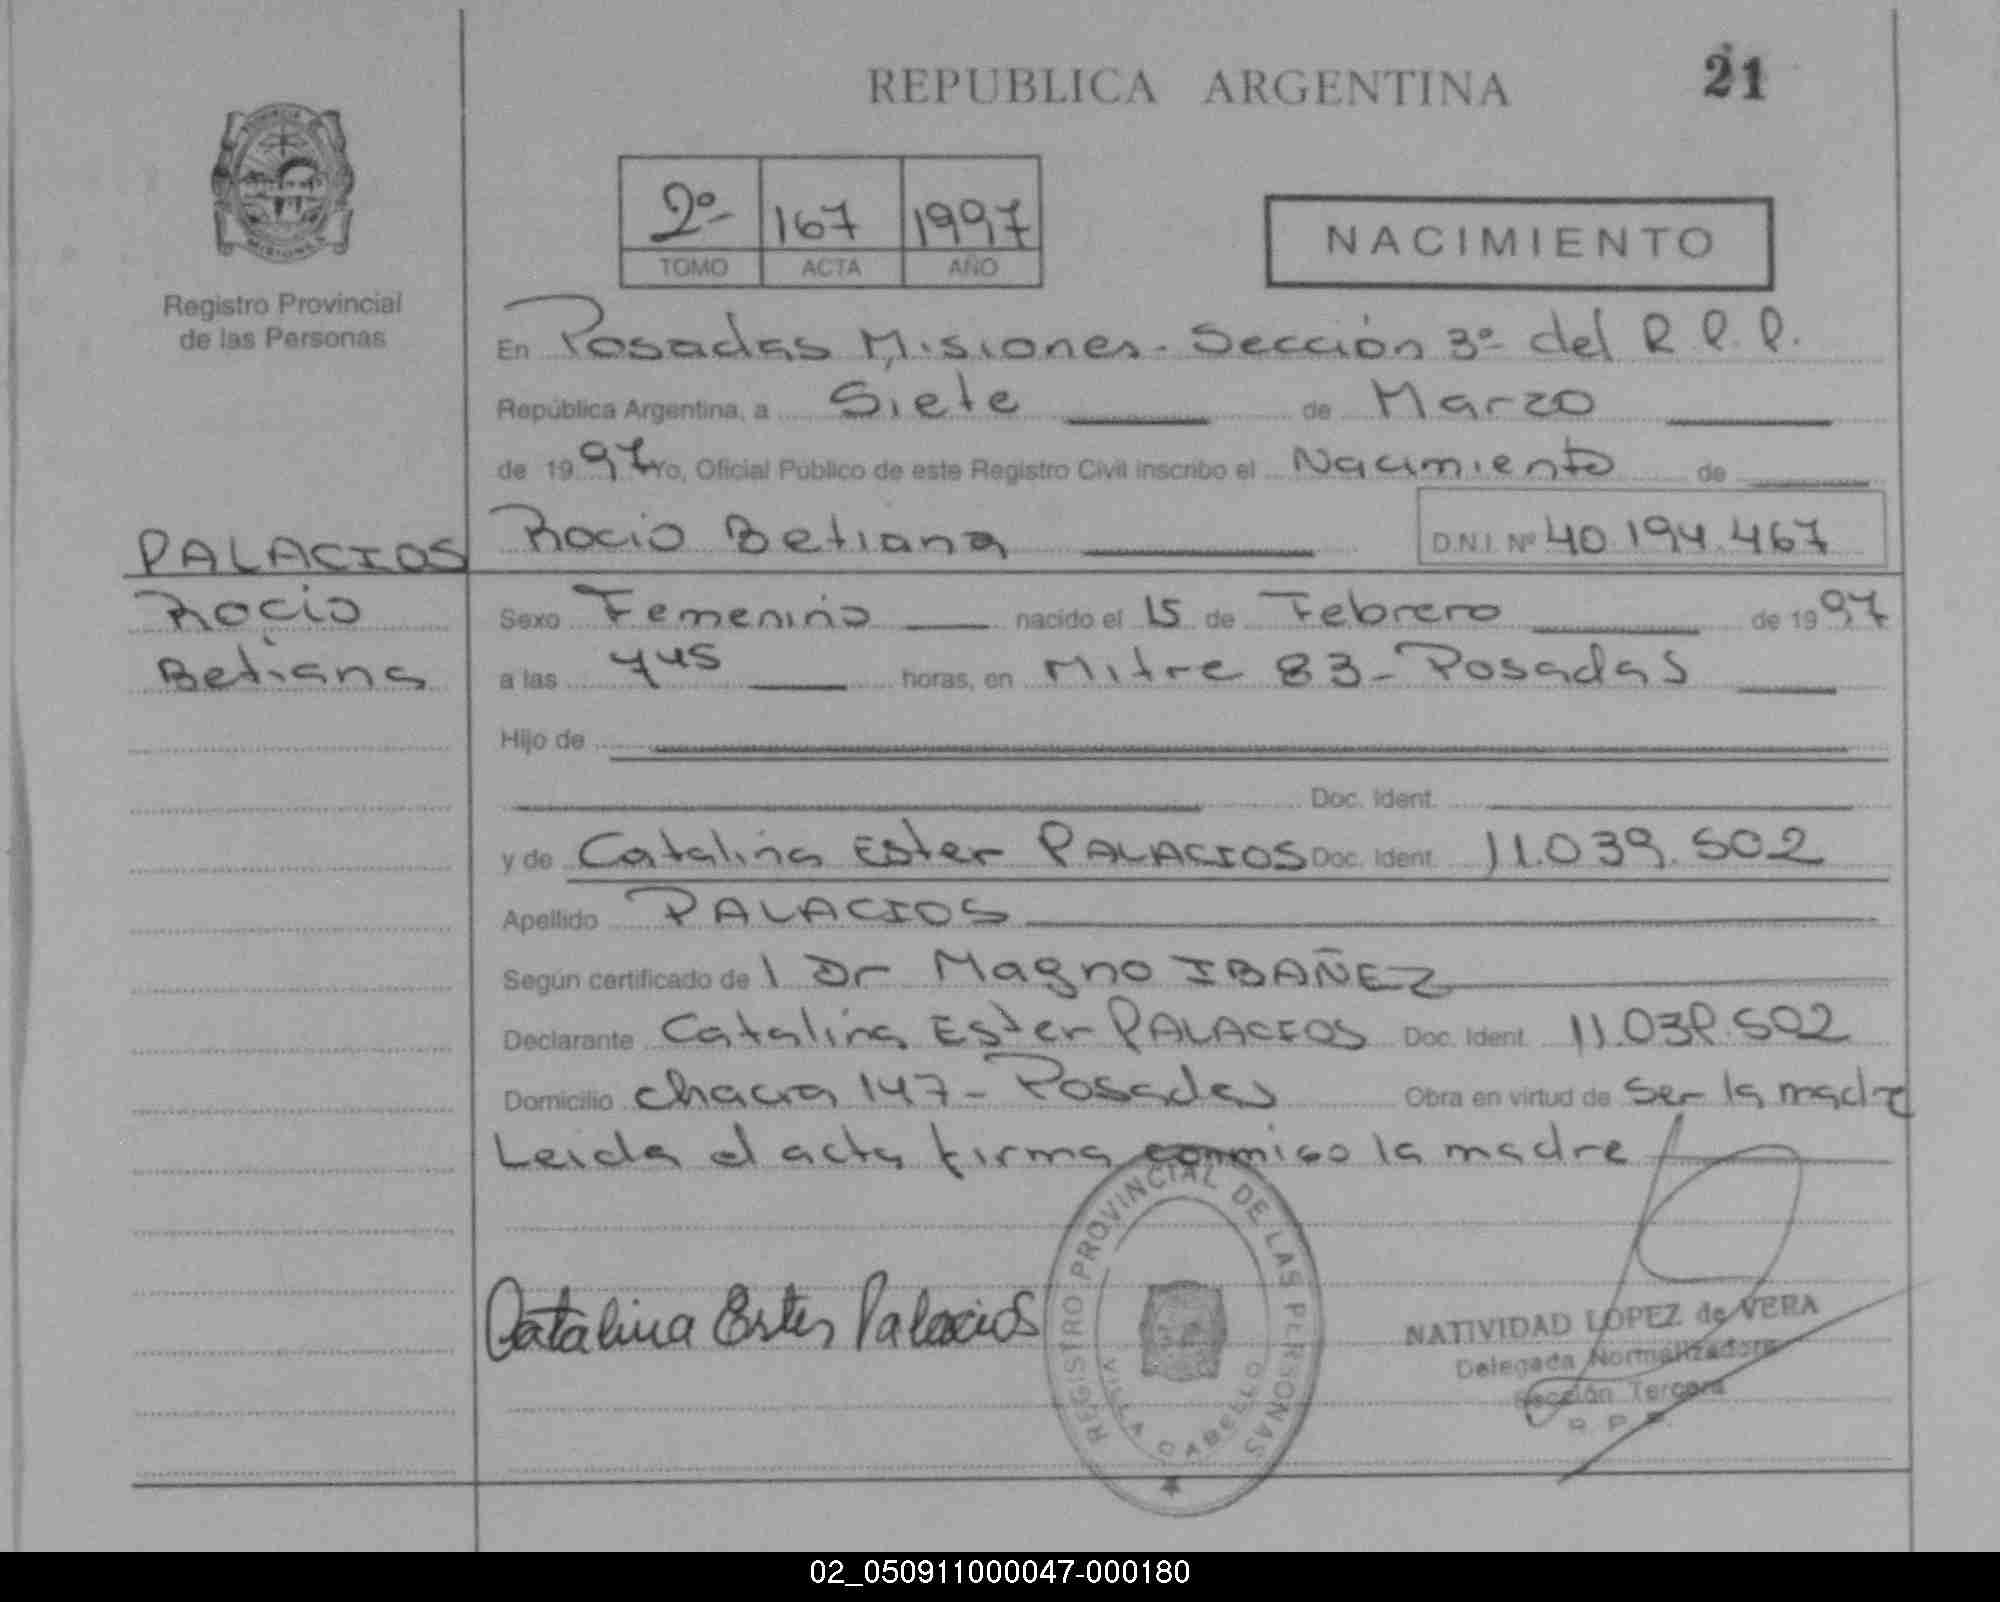 REPUBLICA ARGENTINA 21
2º 167 1997
TOMO ACTA AÑO
NACIMIENTO
Registro Provincial
de las Personas
En Posadas Misiones - Sección 3ª del R.P.P.
República Argentina, a Siete de Marzo
de 1997 Yo, Oficial Público de este Registro Civil inscribo el Nacimiento de
PALACIOS Rocio Betiana D.N.I. Nº 40.194.467
Rocio Sexo Femenino nacido el 15 de Febrero de 1997
Betiana a las 745 horas, en Mitre 83 - Posadas
Hijo de
Doc. Ident.
y de Catalina Ester PALACIOS Doc. Ident. 11.039.502
Apellido PALACIOS
Según certificado de l Dr Magno IBAÑEZ
Declarante Catalina Ester PALACIOS Doc. Ident. 11.039.502
Domicilio chacra 147 - Posadas Obra en virtud de ser la madre
Leida el acta firma conmigo la madre
REGISTRO PROVINCIAL DE LAS PERSONAS
VILLA CABELLO
Catalina Ester Palacios
NATIVIDAD LOPEZ de VERA
Delegada Normalizadora
Sección Tercera
R. P. P.
02_050911000047-000180